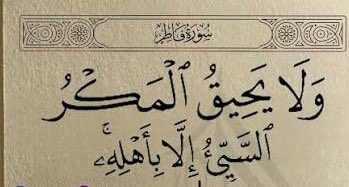 سُورَةُ فَاطِرٍ
وَلَا يَحِيقُ ٱلْمَكْرُ
ٱلسَّيِّئُ إِلَّا بِأَهْلِهِۦۚ